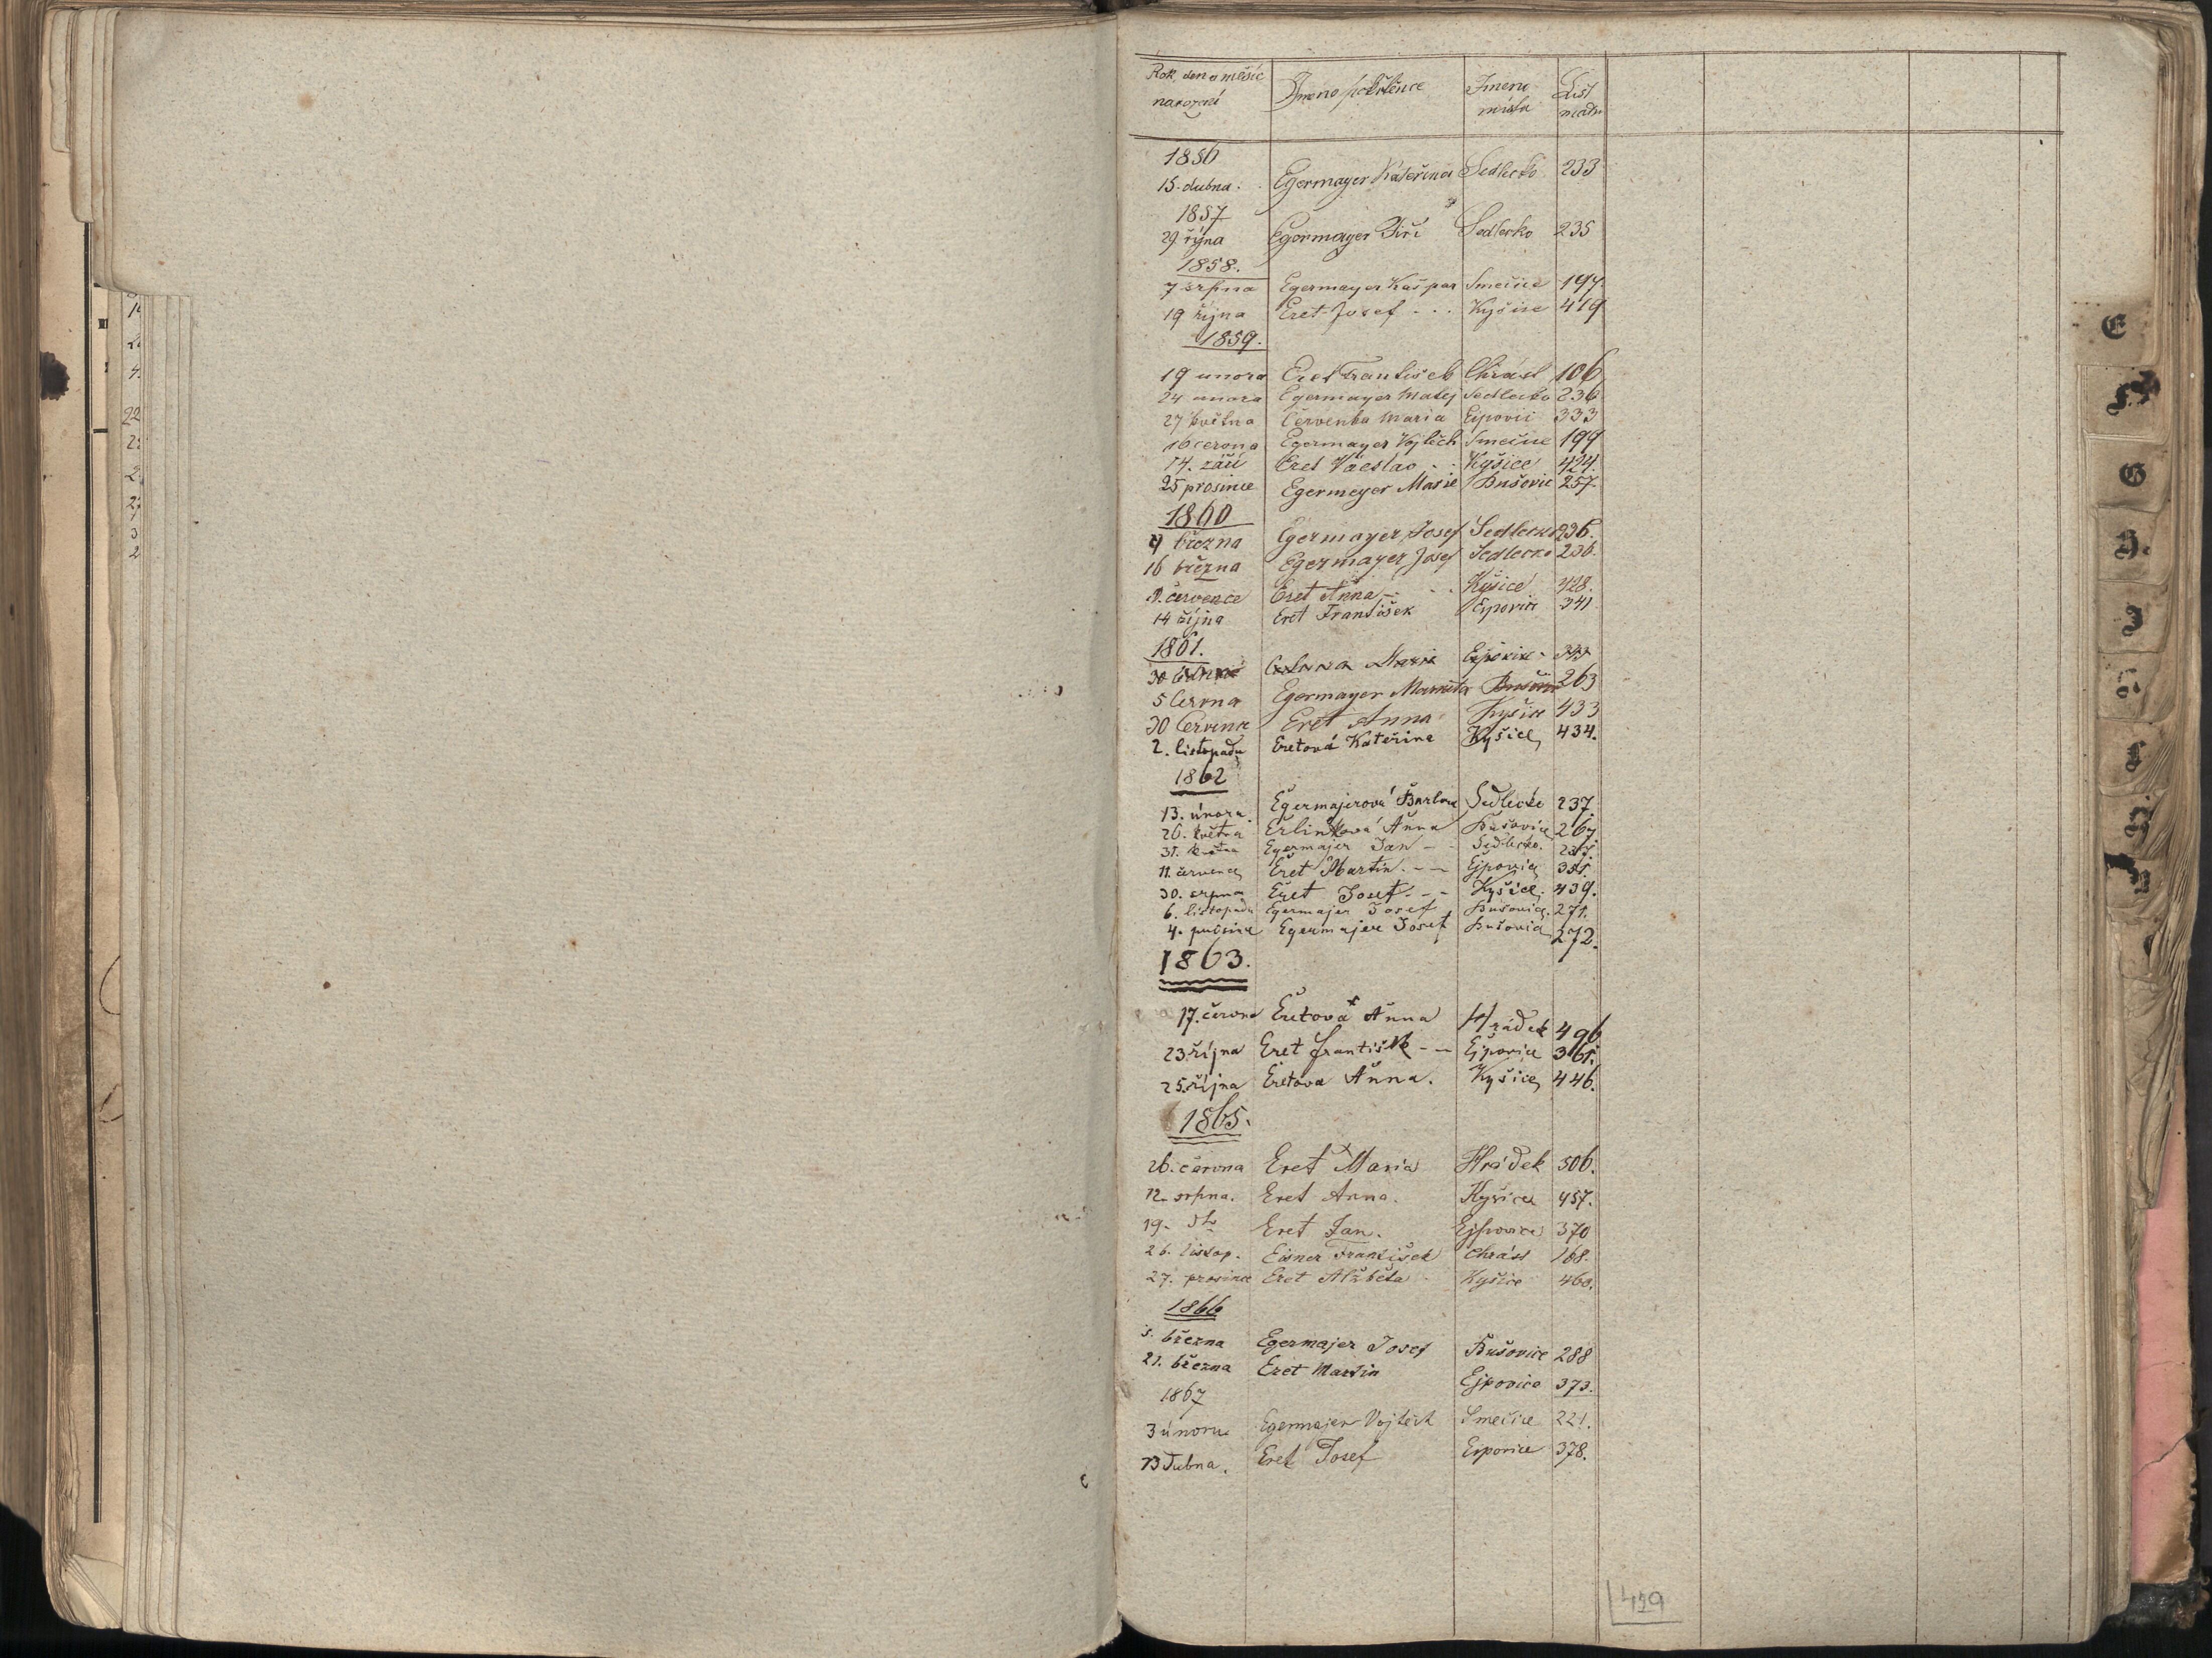 Rok, den a měsíc narození | Jmeno pokřtěnce | Jmeno místa | List matr.
1856
15. dubna. Egermayer Kateřina Sedlecko 233
1857
29 října Egermayer Jiří Sedlecko 235
1858.
7 srpna Egermayer Kašpar Smečice 197.
19 října Eret Josef - . . Kyšice 419
1859.
19 unora Eret František Chrást 106
24 unora Egermayer Matěj Sedlecko 236
27 května Červenka Maria Ejpovic 333
16 června Egermayer Vojtěch Smečice 199
14. září Eret Václav . . Kyšice 424.
25 prosince Egermeyer Marie Bušovic 257.
1860
9 března Egermayer Josef Sedlecko 236.
16 března Egermayer Josef Sedlecko 236.
července Eret Anna - . . Kyšice 428.
14 října Eret František Ejpovic 341
1861.
30 Marie Ejpovice
5 Června Egermayer Markéta Bušovic 263
30 Června Eret Anna Kyšice 433
2. listopadu Eretová Kateřina Kyšice 434.
1862
13. února. Egermajerová Barbora Sedlecko 237.
26. května Erlinková Anna Bušovice 267.
31. května Egermajer Jan - - Sedlecko. 237.
11. července Eret Martin. - - Ejpovice 351.
30. srpna Eret Josef. - - Kyšice. 439.
6. listopadu Egermajer Josef Bušovice. 271.
4. prosince Egermajer Josef Bušovice 272.
1863.
17. června Eretová Anna Hrádek 496
23. října Eret František - - Ejpovice 361.
25. října Eretova Anna. Kyšice 446.
1865.
26. června Eret Maria Hrádek 506.
12. srpna. Eret Anna. Kyšice 457.
19. dto Eret Jan. Ejpovice 370
26. listop. Eisner František Chrást 168.
27. prosince Eret Alžběta Kyšice 460.
1866
března Egermajer Josef Bušovice 288
21. března Eret Martin Ejpovice 373.
1867
3 února Egermajer Vojtěch Smečice 221.
13 Dubna. Eret Josef Eipovice 378.
429
E
G